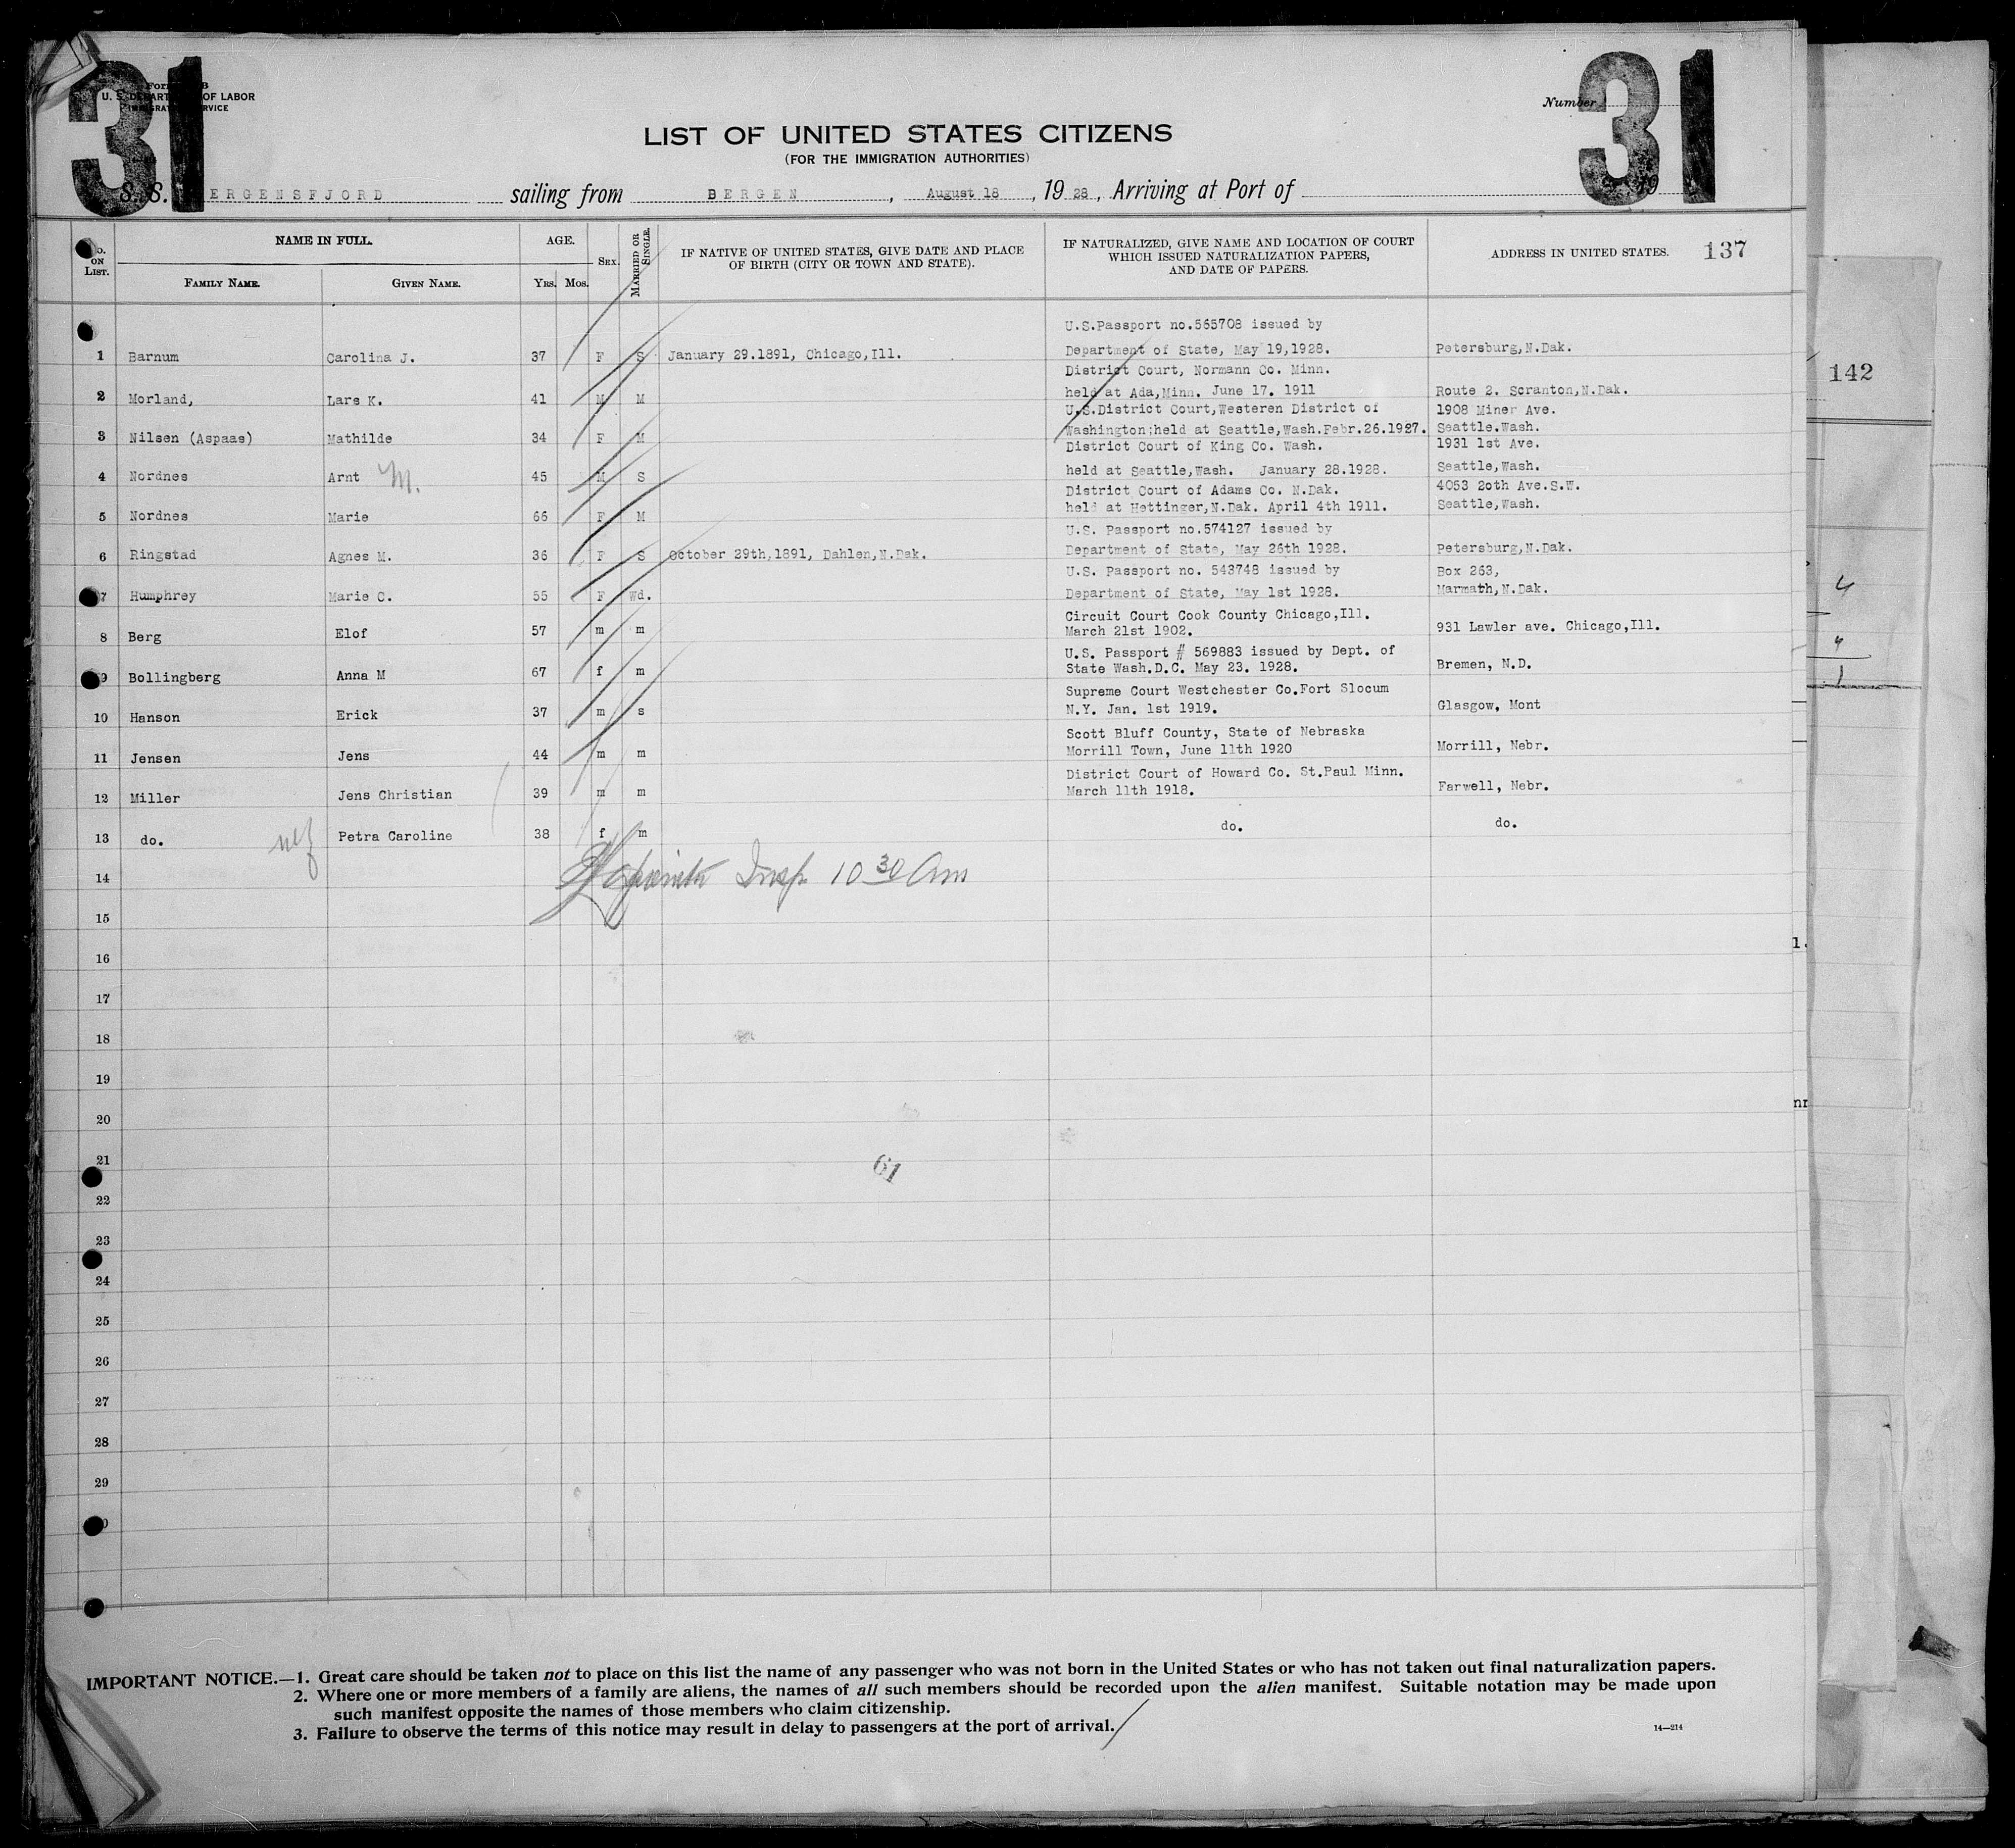 31
31
U. S. DEPARTMENT OF LABOR
IMMIGRATION SERVICE
Number
LIST OF UNITED STATES CITIZENS
(FOR THE IMMIGRATION AUTHORITIES)
S. S. ERGENSFJORD sailing from BERGEN, August 18, 1928, Arriving at Port of 19
No. ON LIST.
NAME IN FULL.
FAMILY NAME.
GIVEN NAME.
AGE.
YRS. MOS.
SEX.
MARRIED OR SINGLE.
IF NATIVE OF UNITED STATES, GIVE DATE AND PLACE
OF BIRTH (CITY OR TOWN AND STATE).
IF NATURALIZED, GIVE NAME AND LOCATION OF COURT
WHICH ISSUED NATURALIZATION PAPERS,
AND DATE OF PAPERS.
ADDRESS IN UNITED STATES. 137
142
U.S.Passport no.565708 issued by
1 Barnum Carolina J. 37 F S January 29.1891, Chicago,Ill. Department of State, May 19,1928. Petersburg,N.Dak.
District Court, Normann Co. Minn.
2 Morland, Lars K. 41 M M held at Ada,Minn. June 17. 1911 Route 2. Scranton,N.Dak.
U.S.District Court,Westeren District of 1908 Miner Ave.
3 Nilsen (Aspaas) Mathilde 34 F M Washington;held at Seattle,Wash.Febr.26.1927. Seattle.Wash.
District Court of King Co. Wash. 1931 1st Ave.
4 Nordnes Arnt M. 45 M S held at Seattle,Wash. January 28.1928. Seattle,Wash.
District Court of Adams Co. N.Dak. 4053 2oth Ave.S.W.
5 Nordnes Marie 66 F M held at Hettinger,N.Dak. April 4th 1911. Seattle,Wash.
U.S. Passport no.574127 issued by
6 Ringstad Agnes M. 36 F S October 29th,1891, Dahlen,N.Dak. Department of State, May 26th 1928. Petersburg,N.Dak.
U.S. Passport no. 543748 issued by Box 263,
7 Humphrey Marie C. 55 F Wd. Department of State, May 1st 1928. Marmath,N.Dak.
Circuit Court Cook County Chicago,Ill.
8 Berg Elof 57 m m March 21st 1902. 931 Lawler ave. Chicago,Ill.
U.S. Passport # 569883 issued by Dept. of
9 Bollingberg Anna M 67 f m State Wash.D.C. May 23. 1928. Bremen, N.D.
Supreme Court Westchester Co.Fort Slocum
10 Hanson Erick 37 m s N.Y. Jan. 1st 1919. Glasgow, Mont
Scott Bluff County, State of Nebraska
11 Jensen Jens 44 m m Morrill Town, June 11th 1920 Morrill, Nebr.
District Court of Howard Co. St.Paul Minn.
12 Miller Jens Christian 39 m m March 11th 1918. Farwell, Nebr.
13 do. Petra Caroline 38 f m do. do.
14 Insp. 10 30 Am
15
16
17
18
19
20
21
61
22
23
24
25
26
27
28
29
IMPORTANT NOTICE.—1. Great care should be taken not to place on this list the name of any passenger who was not born in the United States or who has not taken out final naturalization papers.
2. Where one or more members of a family are aliens, the names of all such members should be recorded upon the alien manifest. Suitable notation may be made upon
such manifest opposite the names of those members who claim citizenship.
3. Failure to observe the terms of this notice may result in delay to passengers at the port of arrival.
14—214